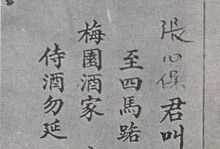 張心保君叫
至四馬路
梅園酒家
侍酒勿延